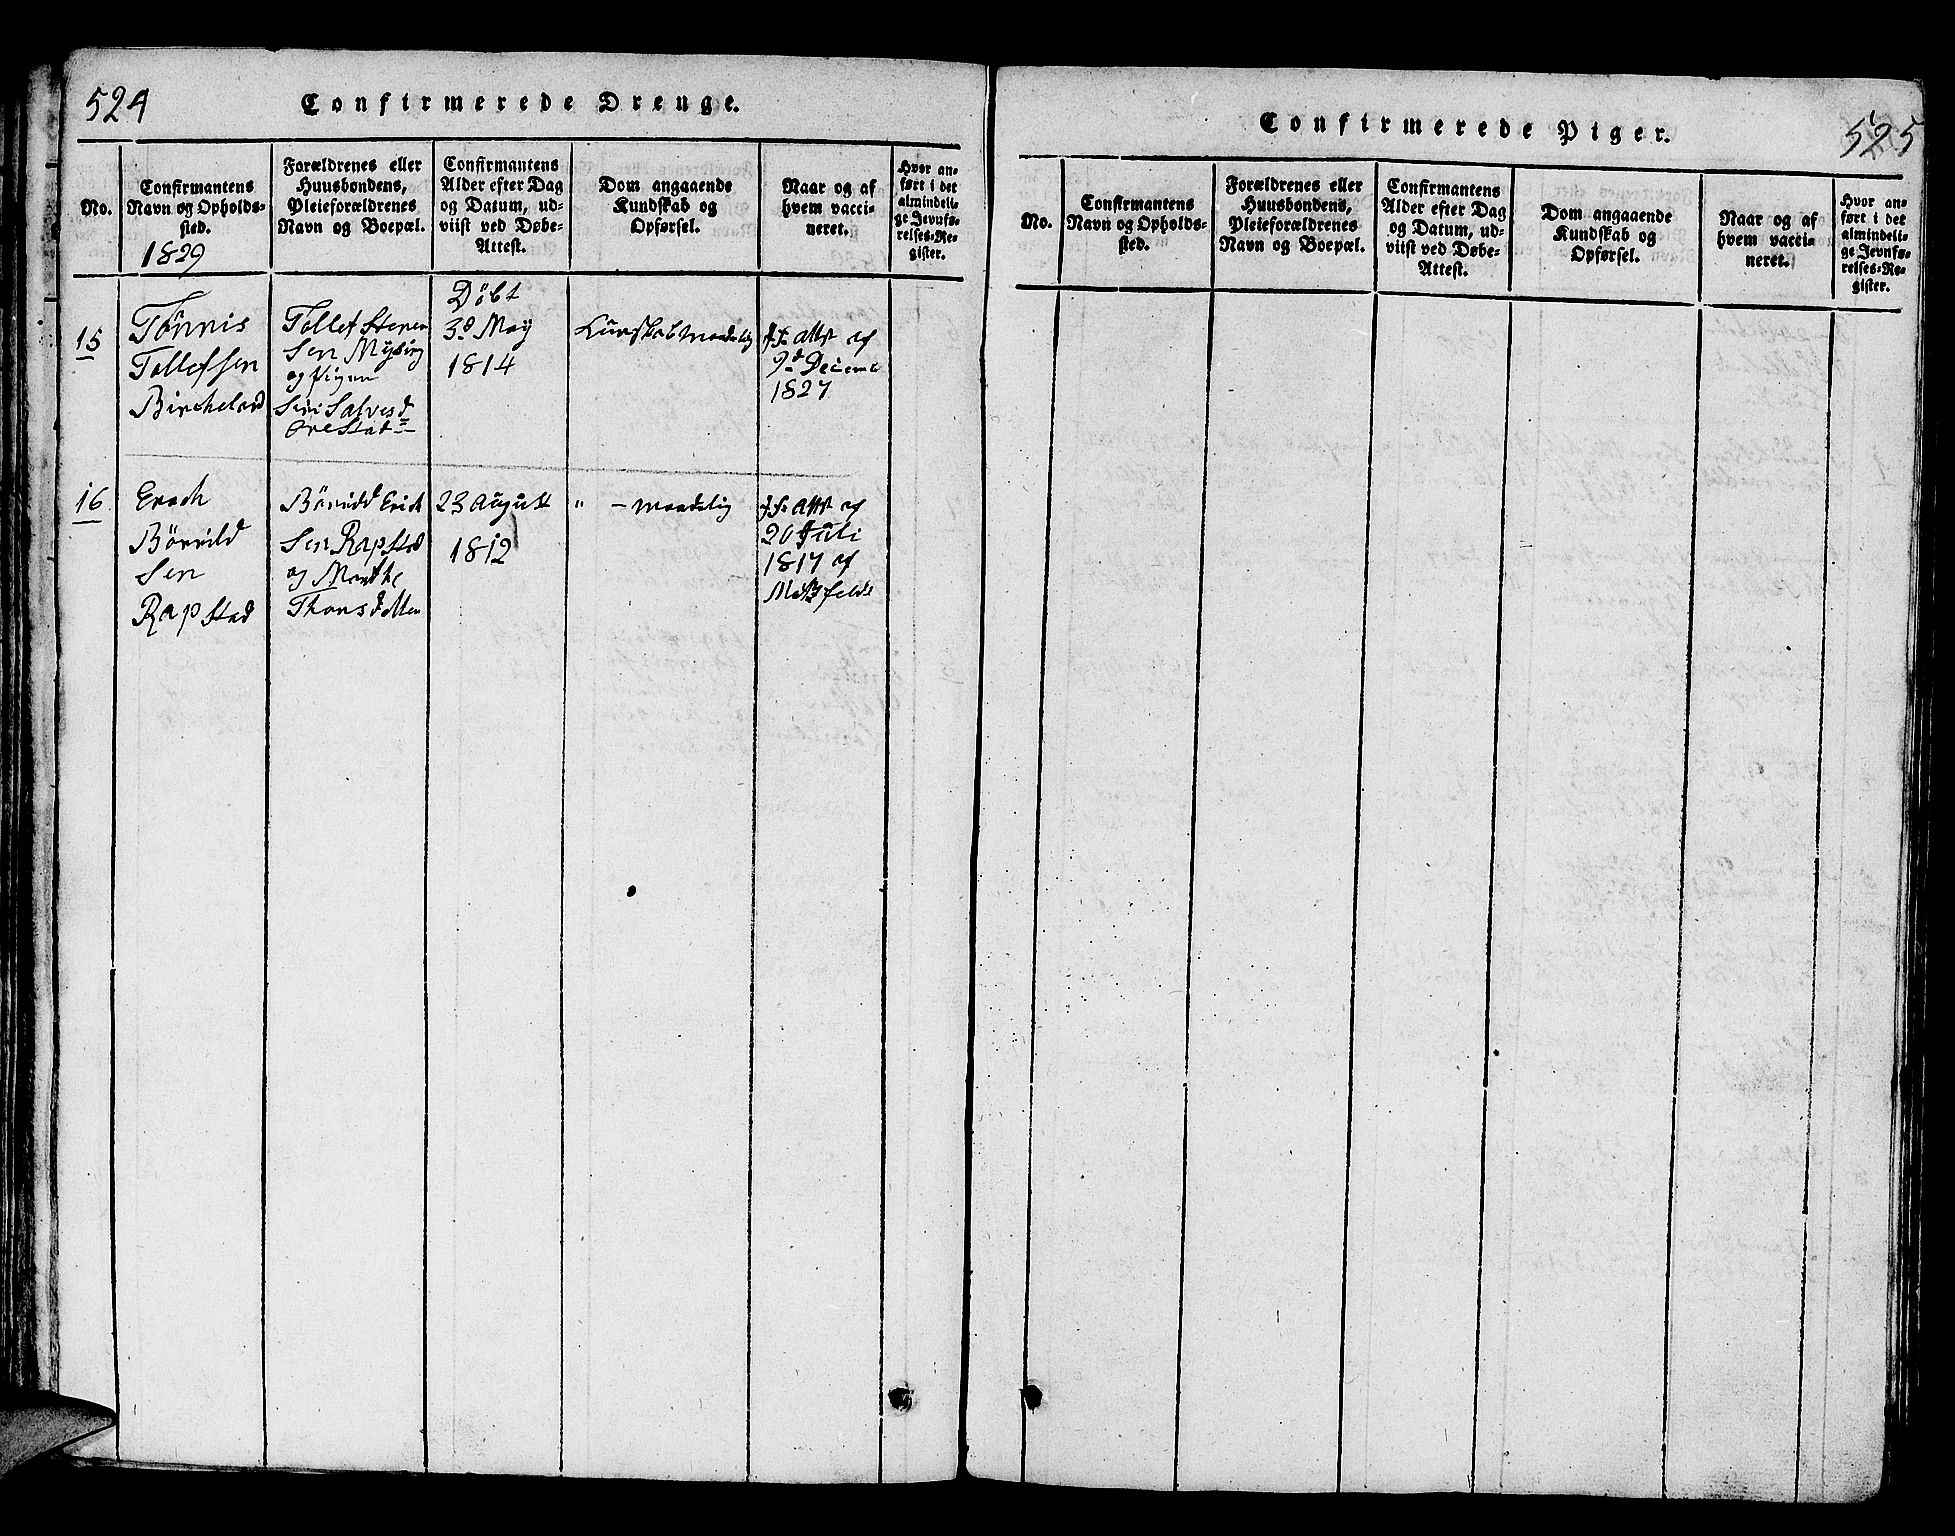 524
Confirmerede Drenge.
No.
Confirmantens
Navn og Opholds-
sted.
1829
Forældrenes eller
Huusbondens,
Pleieforældrenes
Navn og Boepæl.
Confirmantens
Alder efter Dag
og Datum, ud-
viist ved Døbe-
Attest.
Dom angaaende
Kundskab og
Opførsel.
Naar og af
hvem vacci-
neret.
Hvor an-
ført i det
almindeli-
ge Jevnfø-
relses-Re-
gister.
15
Tønnis
Tollefsen
Bircheland
Tollef Stenen
Sen Mysing
og Pigen
Siri Salvesd
Øre Stad
Døbt
3d May
1814
Kunskab maadelig
Attst af
9d Decemb
1827
16
Erach
Börild
Sen
Rap Stad
Börild Erich
Sen Rap Stad
og Marthe
Thorsdatter
23 August
1812
" – maadelig
Attst af
20 Juli
1817 af
525
Confirmerede Piger.
No.
Confirmantens
Navn og Opholds-
sted.
Forældrenes eller
Huusbondens,
Pleieforældrenes
Navn og Boepæl.
Confirmantens
Alder efter Dag
og Datum, ud-
viist ved Døbe-
Attest.
Dom angaaende
Kundskab og
Opførsel.
Naar og af
hvem vacci-
neret.
Hvor an-
ført i det
almindeli-
ge Jevnfø-
relses-Re-
gister.